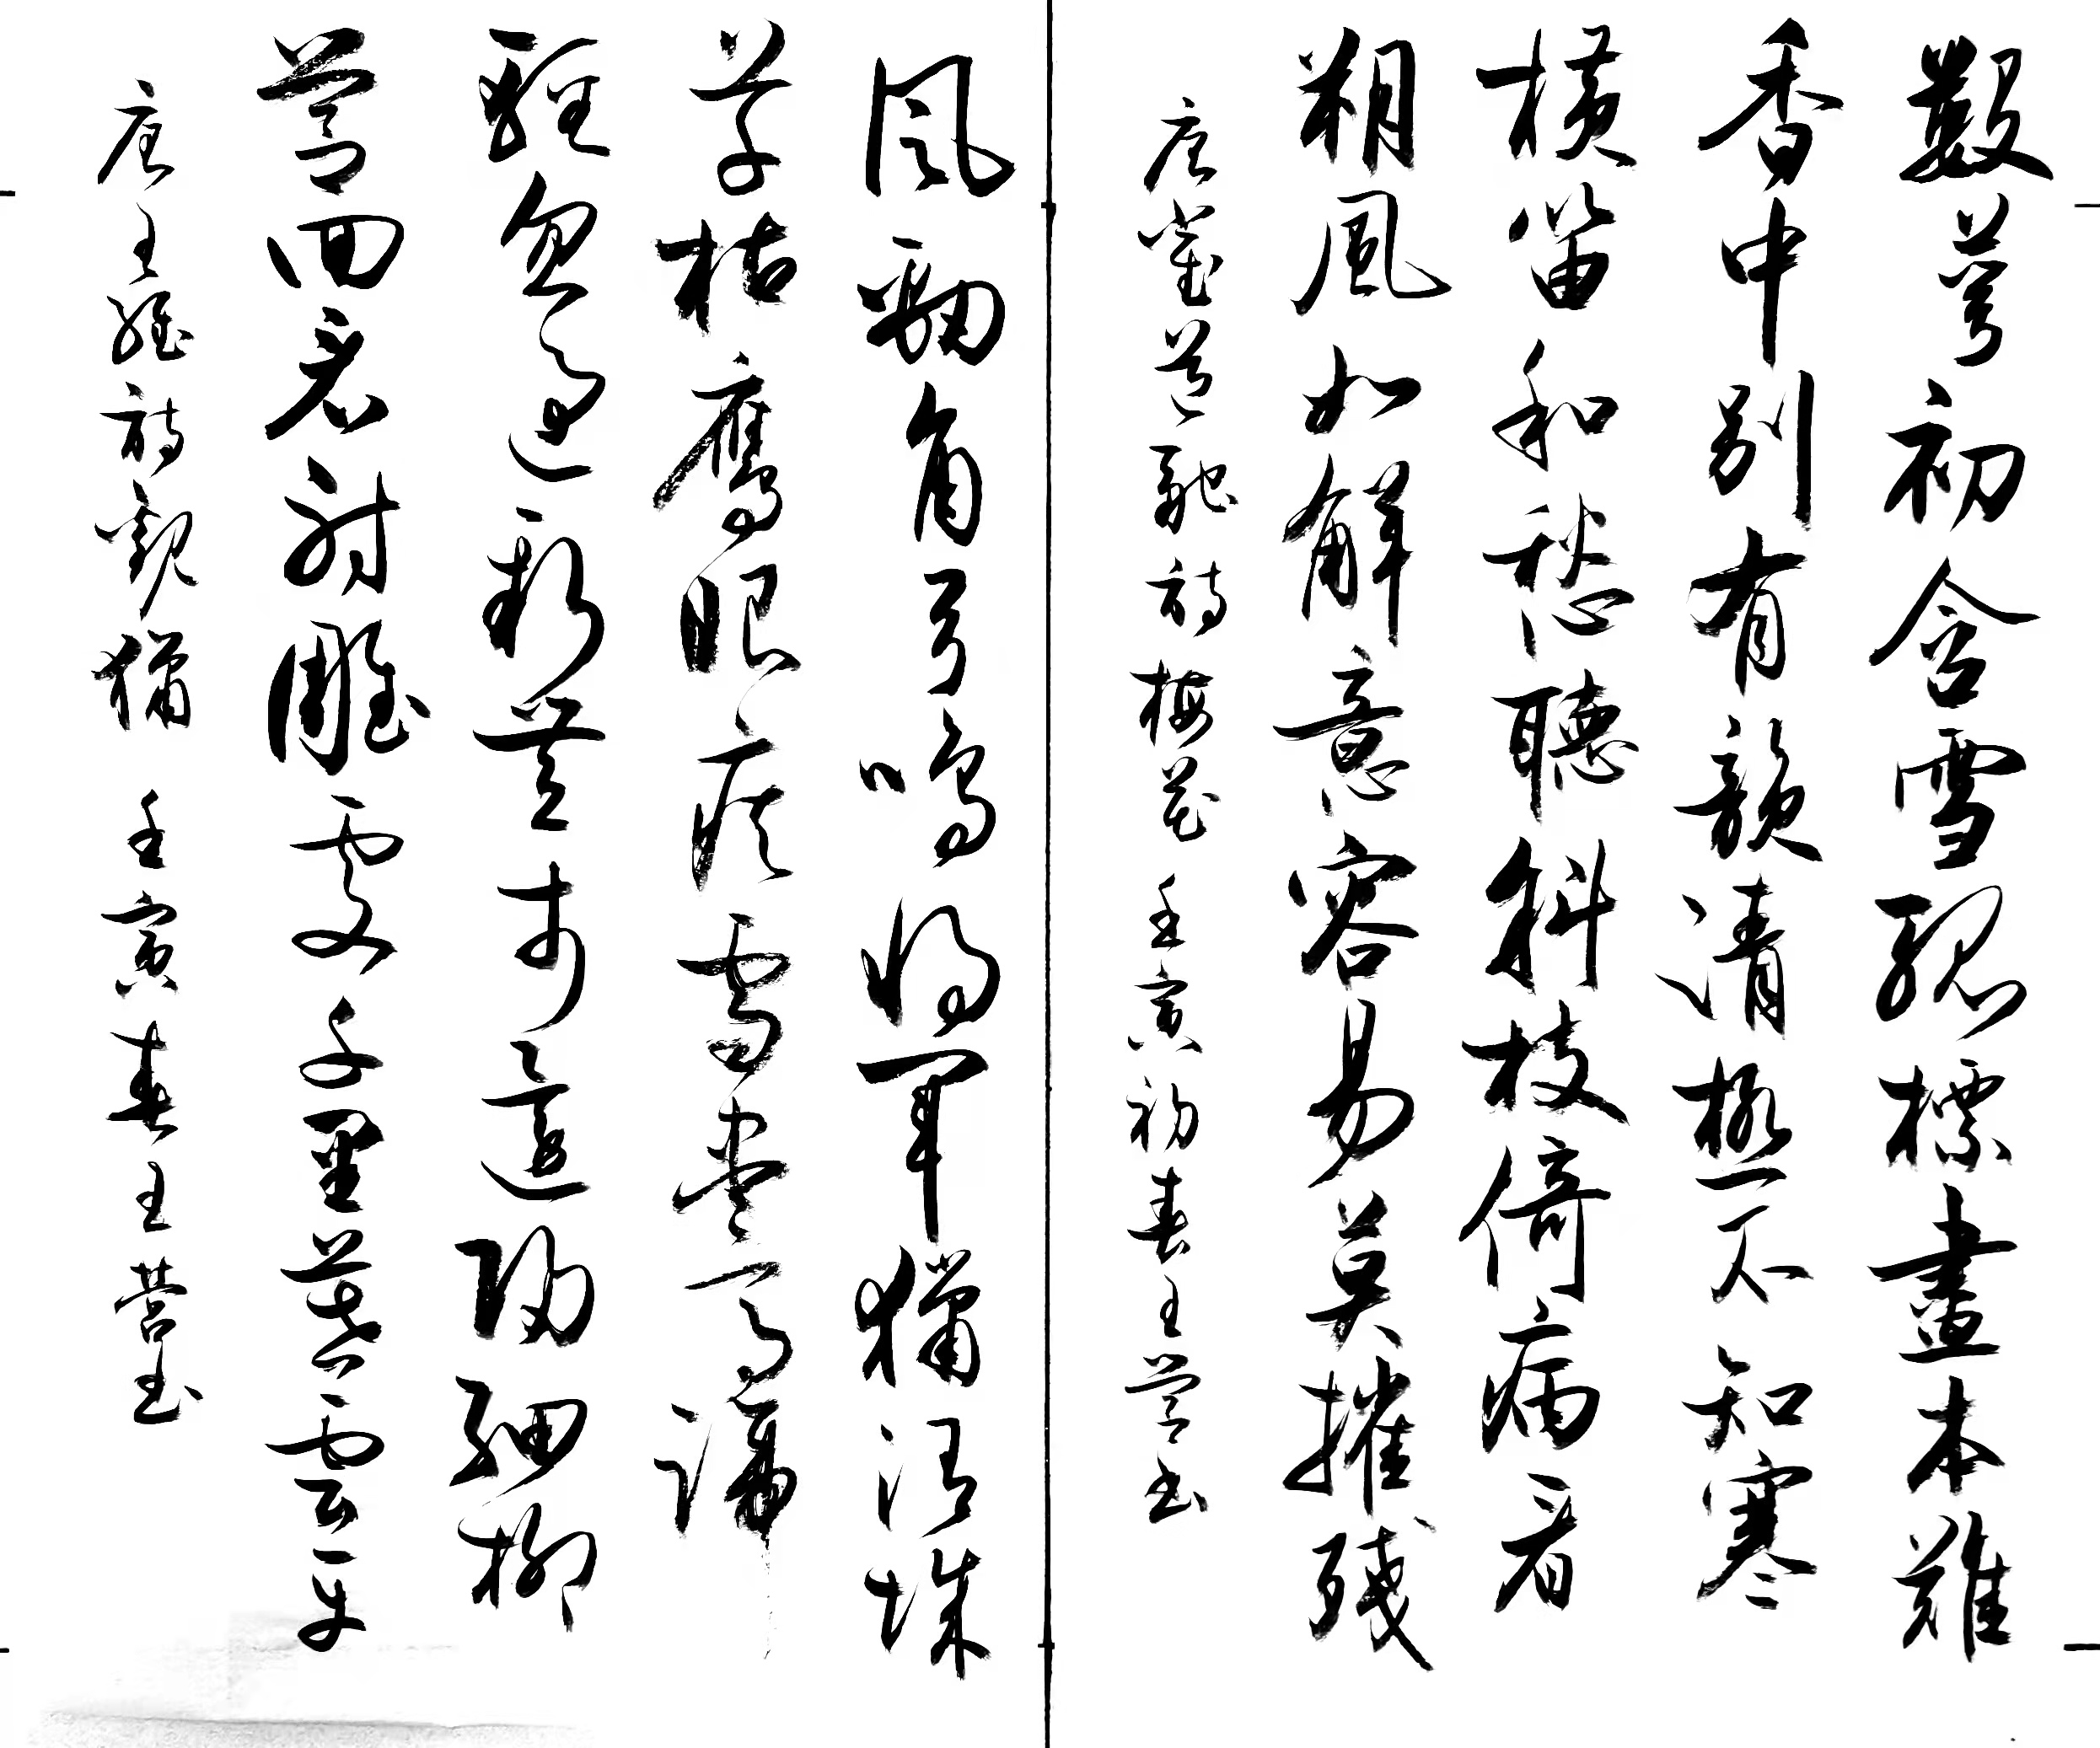 數萼初含雪孤標畫本難
香中別有韻清極不知寒
橫笛和愁聽斜枝倚病看
朔風如解意容易莫摧殘
唐崔道融詩梅花 壬寅初春王營書
風勁角弓鳴將軍獵渭城
草枯鷹眼疾雪盡馬蹄
輕忽過新豐市還歸細柳
營回看射鵰處千里暮雲平
唐王維詩觀獵 壬寅春王營書